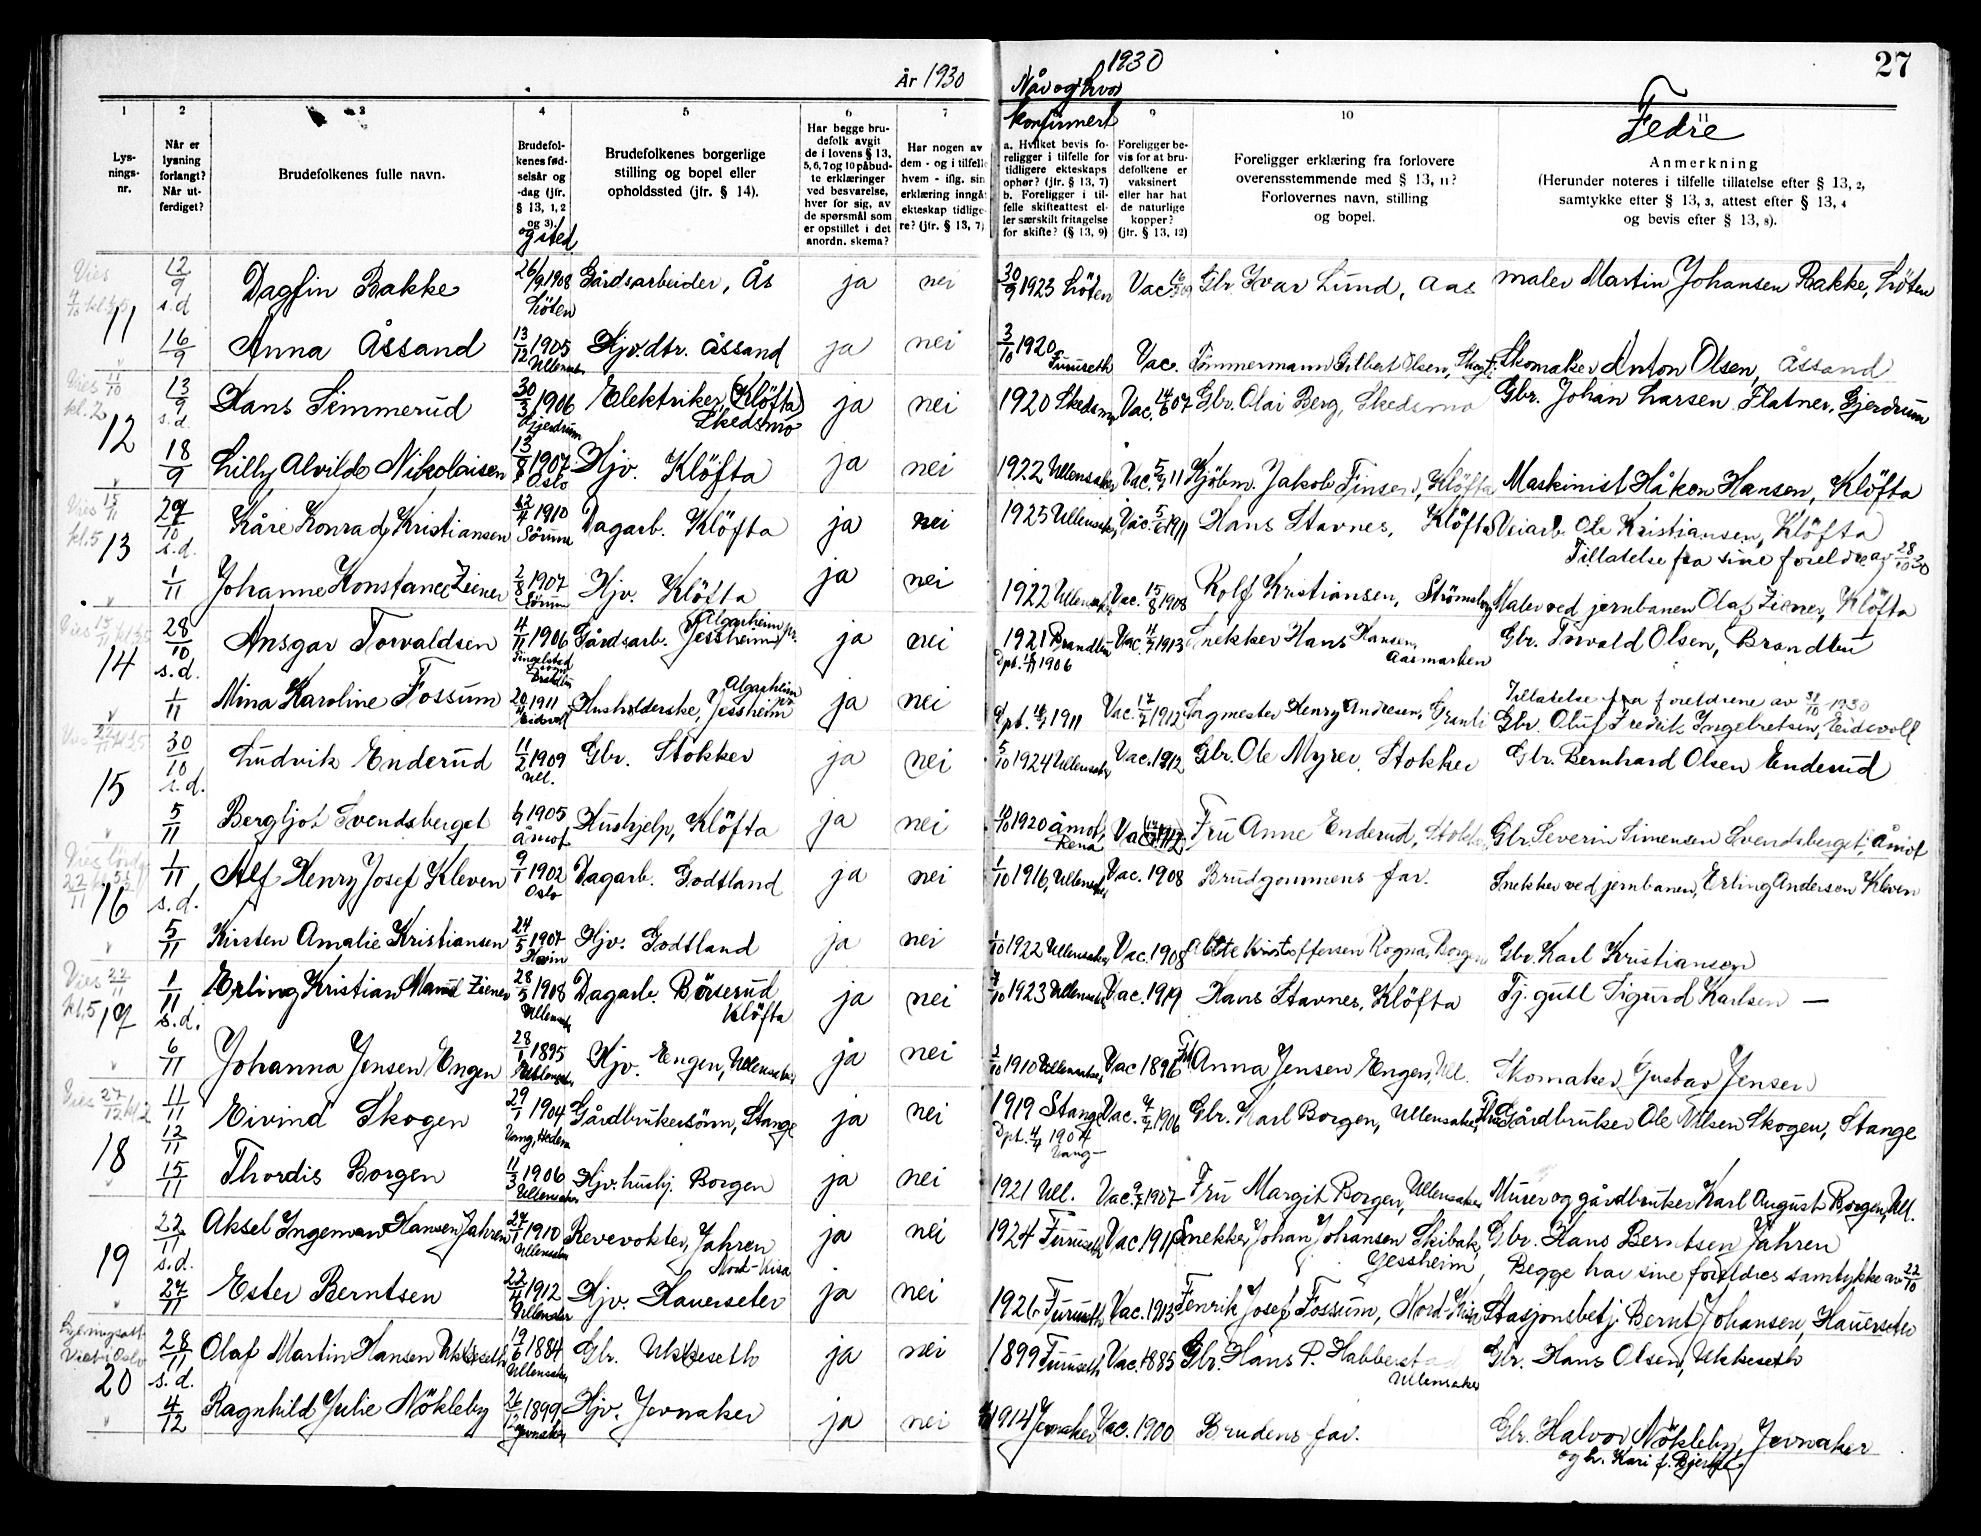 År 1930
1930
27
1
Lys-
nings-
nr.
2
Når er
lysning
forlangt?
Når ut-
ferdiget?
3
Brudefolkenes fulle navn.
4
Brudefol-
kenes fød-
selsår og
-dag (jfr.
§ 13, 1, 2
og 3).
og sted
5
Brudefolkenes borgerlige
stilling og bopel eller
opholdssted (jfr. § 14).
6
Har begge bru-
defolk avgit
de i lovens § 13,
5, 6, 7 og 10 påbud-
te erklæringer
ved besvarelse,
hver for sig, av
de spørsmål som
er opstillet i det
anordn. skema?
7
Har nogen av
dem - og i tilfelle
hvem - iflg. sin
erklæring inngått
ekteskap tidlige-
re? (jfr. § 13, 7)
Når og hvor
konfirmert
a. Hvilket bevis fo-
religger i tilfelle for
tidligere ekteskaps
ophør? (jfr. § 13, 7)
b. Foreligger i til-
felle skifteattest el-
ler særskilt fritagelse
for skifte? (§ 13, 9)
9
Foreligger be-
vis for at bru-
defolkene er
vaksinert
eller har hat
de naturlige
kopper?
(jfr. § 13, 12)
10
Foreligger erklæring fra forlovere
overensstemmende med § 13, 11?
Forlovernes navn, stilling
og bopel.
11
Fedre
Anmerkning
(Herunder noteres i tilfelle tillatelse efter § 13, 2,
samtykke efter § 13, 3, attest efter § 13, 4
og bevis efter § 13, 8).
11 12/9 s.d Dagfin Bakke 26/9 1908 Löten Gårdsarbeider, Ås ja nei 30/9 1923 Löten Vac. Gbr Ivar Lund, Aas maler Martin Johansen Bakke, Löten
16/9 Anna Åssand 13/12 1905 Ullensaker Hjv. dtr. Åssand ja nei 3/10 1920 Furuseth Vac. Tømmermann Gilbert Olsen, Skomaker Anton Olsen, Åssand
Vies 11/10 kl. 2
12 13/9 s.d. Hans Simmerud 30/3 1906 Gjerdrum Elektriker (Klöfta) Skedsmo ja nei 1920 Skedsmo Vac. 07 Gbr. Olai Berg, Skedsmo Gbr. Johan Larsen Flatner, Gjerdrum
18/9 Lilly Alvilde Nikolaisen 13/8 1907 Oslo Hjv. Klöfta ja nei 1922 Ullensaker Vac. 11 Kjöbm. Jakob Finsen, Klöfta Maskinist Håkon Hansen, Klöfta
Vies 15/11 kl. 5
13 29/10 s.d. Kåre Konrad Kristiansen 1910 Sörum Dagarb. Klöfta ja nei 1925 Ullensaker Vac. 5/6 1911 Hans Stavnes, Klöfta Veiarb. Ole Kristiansen, Klöfta
Tillatelse fra sine foreldre av 28/10 30
1/11 Johanne Konstance Ziener 2/8 1907 Sörum Hjv. Klöfta ja nei 1922 Ullensaker Vac. 15/8 1908 Rolf Kristiansen, Maler ved jernbanen Olaf Ziener, Klöfta
14 28/10 s.d. Ansgar Torvaldsen 4/11 1906 Tingelstad Brandbu Gårdsarb. Algarheim pr. Jessheim ja nei 1921 Brandbu 1906 Vac. 1913 Snekker Hans Hansen, Aasmarken Gbr. Torvald Olsen, Brandbu
Tillatelse fra foreldrene av 31/10 1930
1/11 Mina Karoline Fossum 1911 Eidsvoll Husholderske, Algarheim pr. Jessheim ja nei 1911 Vac. 17/7 1912 Sagmester Henry Andresen, Gbr. Oluf Fredrik Ingebretsen, Eidsvoll
15 30/10 s.d. Ludvik Enderud 11/2 1909 Ull. Gbr. Stokker ja nei 5/10 1924 Ullensaker Vac. 1912 Gbr. Ole Myrer, Stokker Gbr. Bernhard Olsen Enderud
5/11 Bergljot Svendsberget 1905 Åmot Hushjelp, Klöfta ja nei 1920 Åmot, Rena Vac. 1912 Fru Anne Enderud, Stokker Gbr. Severin Simensen Svendsberget, Åmot
16 1/11 s.d. Alf Henry Josef Kleven 9/1 1902 Oslo Dagarb. Godtland ja nei 1/10 1916, Ullensaker Vac. 1908 Brudgommens far. Snekker ved jernbanen, Erling Andersen Kleven
5/11 Kirsten Amalie Kristiansen 24/5 1907 Hjv. Godtland ja nei 1/10 1922 Ullensaker Vac. 1908 Kristoffersen Rogna, Borgen Gbr. Karl Kristiansen
Vies 22/11 kl. 5
17 1/11 s.d. Erling Kristian Ziener 28/5 1908 Ullensaker Dagarb. Börserud Klöfta ja nei 7/10 1923 Ullensaker Vac. 1919 Hans Stavnes, Klöfta Tj. gutt Sigurd Karlsen —
6/11 Johanna Jensen Engen 28/1 1895 Ullensaker Hjv. Engen, Ullensaker ja nei 2/10 1910 Ullensaker Vac 1896 Anna Jensen Engen, Ull. Skomaker Gustav Jensen
Vies 27/12 kl 2
18 11/11 12/11 Eivind Skogen 29/1 1904 Vang, Hedem Gårdbrukersönn, Stange ja nei 1919 Stange Dpt. 4/4 1904 Vang— Vac. 1906 Gbr. Karl Borgen, Ullensaker Gårdbruker Ole Nilsen Skogen, Stange
15/11 Thordis Borgen 11/3 1906 Ullensaker Hjv. hushj. Borgen ja nei 1921 Ull. Vac. 1907 Fru Margit Borgen, Ullensaker Murer og gårdbruker Karl August Borgen, Ull.
19 22/11 s.d. Aksel Ingeman Hansen Jahren 27/1 1910 Ullensaker Revevokter, Jahren Nord-Kisa ja nei 1924 Furuseth Vac 1911 Snekker Johan Johansen Skibak, Jessheim Gbr. Hans Berntsen Jahren
Begge har sine foreldres samtykke av 22/10
27/11 Ester Berntsen 1912 Ullensaker Hjv. Hauerseter ja nei 1926 Furuseth Vac. 1913 Fenrik Josef Fossum, Nord-Kisa Stasjonsbetj. Bernt Johansen, Hauerseter
Vies i Oslo
20 28/11 s.d. Olaf Martin Hansen Ukkeseth 19/6 1884 Ullensaker Gbr. Ukkeseth ja nei 1899 Furuseth Vac. 1885 Gbr. Hans P. Habberstad Ullensaker Gbr. Hans Olsen, Ukkeseth
4/12 Ragnhild Julie Nökleby 26/12 1899, Jevnaker Hjv. Jevnaker ja nei 1914 Jevnaker Vac. 1900 Brudens far. Gbr. Halvor Nökleby, Jevnaker
og h. Kari f. Bjerke